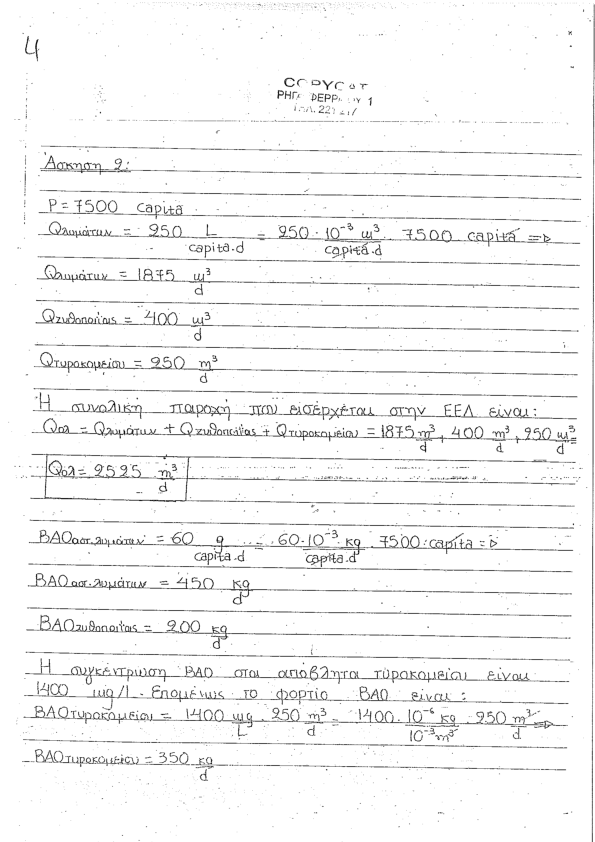 4
COPYCAT
Άσκηση 2:
P = 7500 capita
Qλυμάτων = 250 L/capita.d = 250 · 10⁻³ m³/capita.d · 7500 capita ⇒
Qλυμάτων = 1875 m³/d
Qζυθοποιίας = 400 m³/d
Qτυροκομείου = 250 m³/d
Η συνολική παροχή που εισέρχεται στην ΕΕΛ είναι:
Qολ = Qλυμάτων + Qζυθοποιίας + Qτυροκομείου = 1875 m³/d + 400 m³/d + 250 m³/d =
Qολ = 2525 m³/d
ΒΑΟαστ.λυμάτων = 60 g/capita.d = 60·10⁻³ kg/capita.d · 7500 capita ⇒
ΒΑΟαστ.λυμάτων = 450 kg/d
ΒΑΟζυθοποιίας = 200 kg/d
Η συγκέντρωση ΒΑΟ στα απόβλητα τυροκομείου είναι
1400 mg/l. Επομένως το φορτίο ΒΑΟ είναι:
ΒΑΟτυροκομείου = 1400 mg/L · 250 m³/d = 1400 · 10⁻⁶ kg/10⁻³ m³ · 250 m³/d ⇒
ΒΑΟτυροκομείου = 350 kg/d